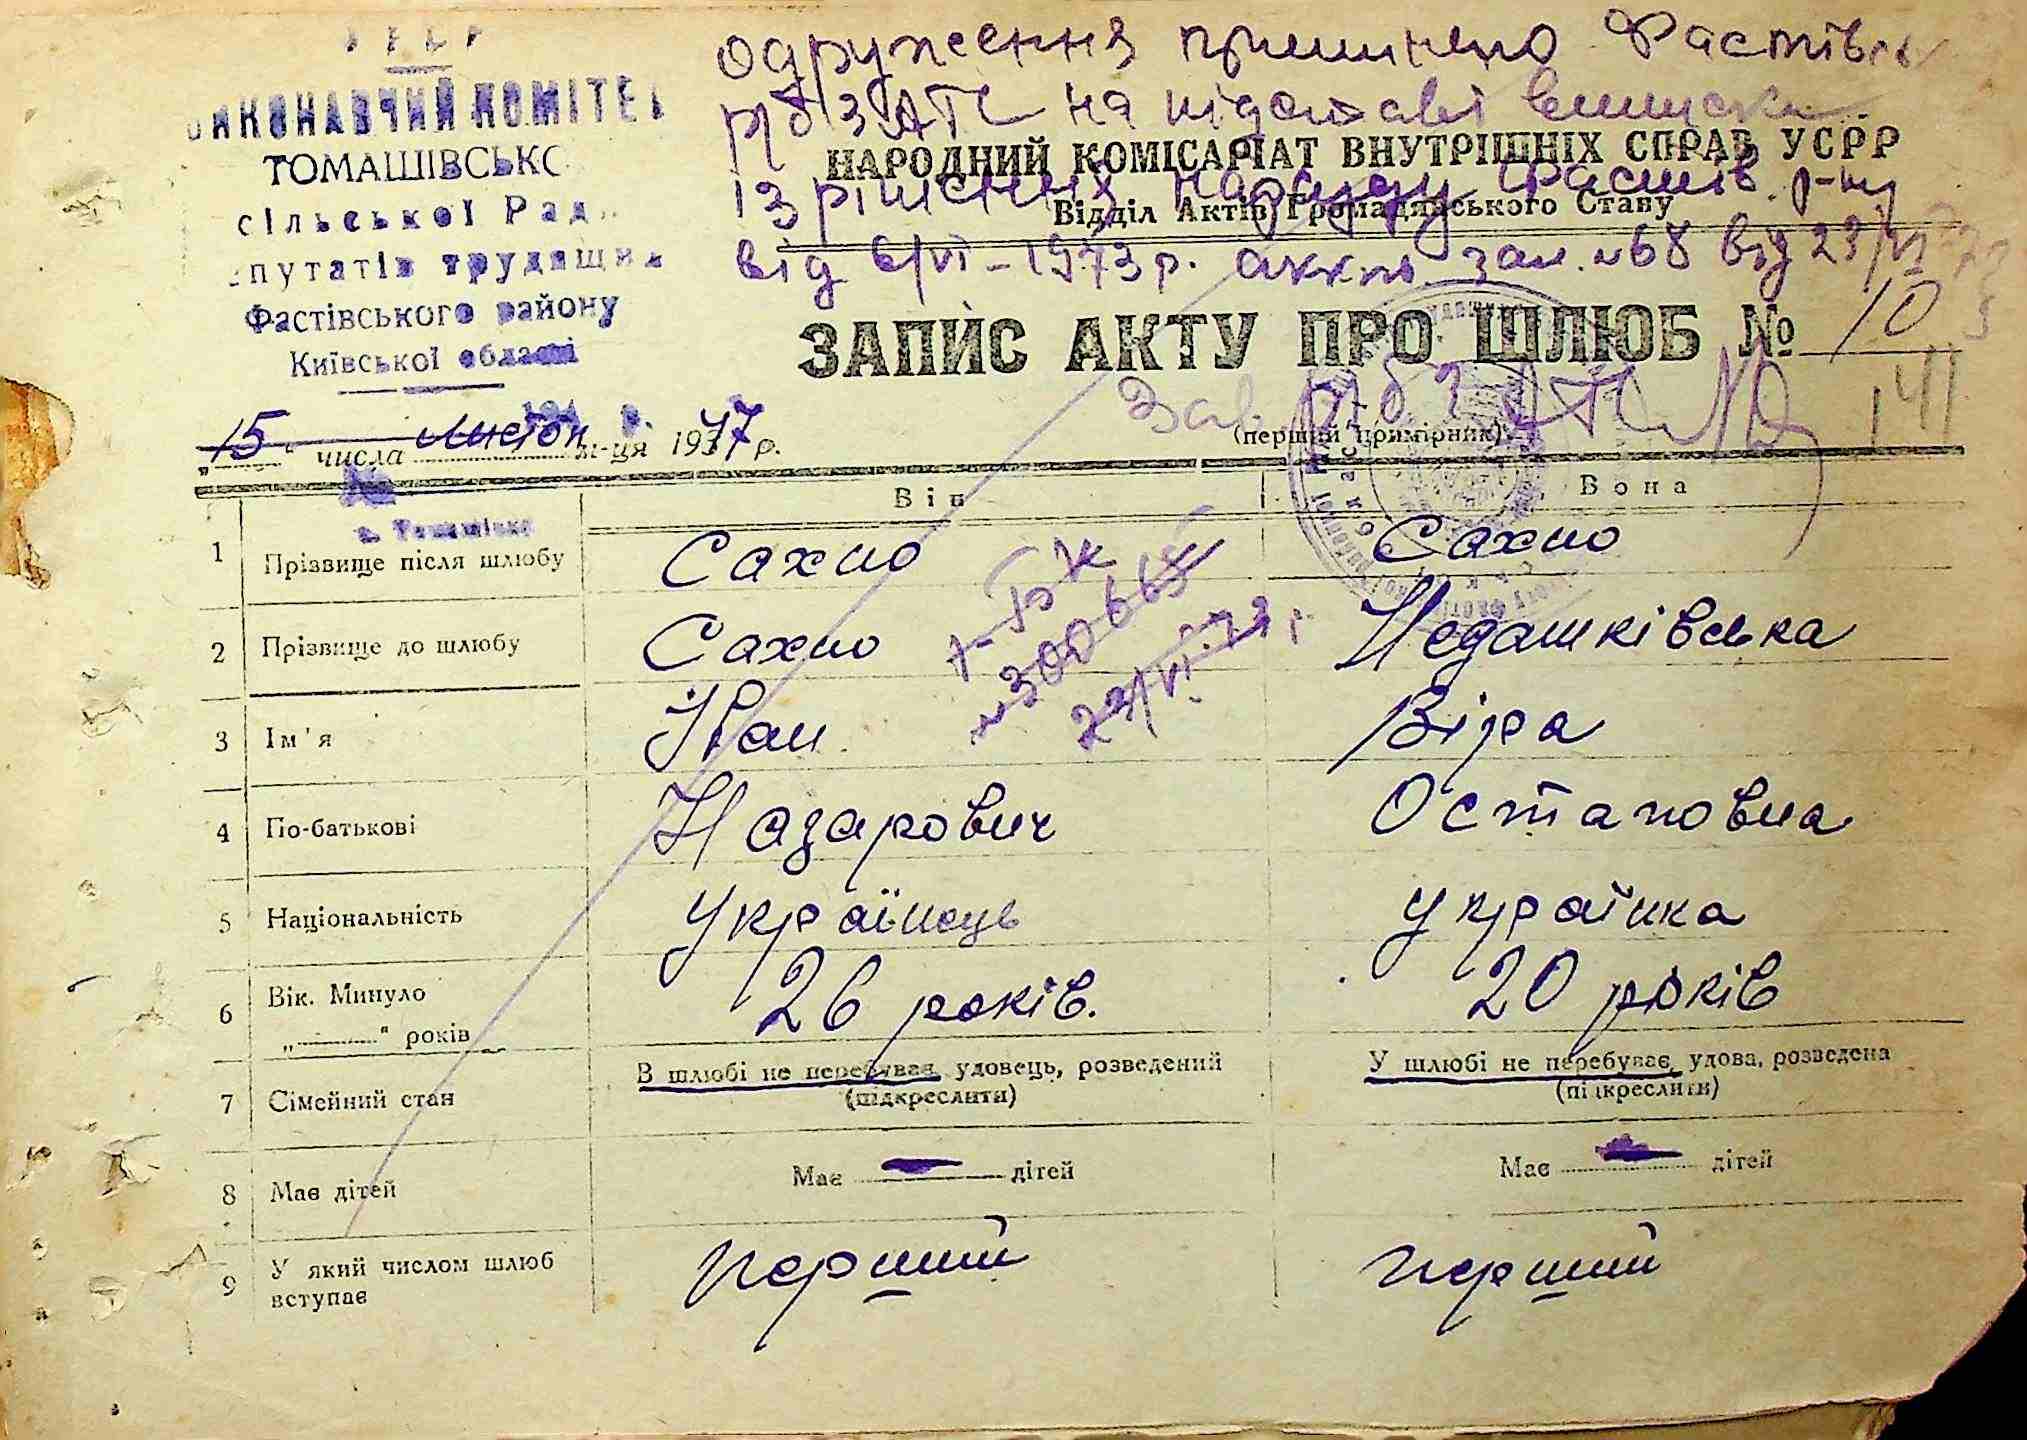 УРСР
ВИКОНАВЧИЙ КОМІТЕТ
ТОМАШІВСЬКО
сільської Рад
депутатів трудящих
Фастівського району
Київської області
одруження припинено Фастівс
РБ ЗАГС на підставі випуска
НАРОДНИЙ КОМІСАРІАТ ВНУТРІШНІХ СПРАВ УСРР
із рішення нарсуду Фастів. р-ну
Відділ Актів Громадянського Стану
від 6/VI-1973р. актов. зап. №68 від 23/VI-73
ЗАПИС АКТУ ПРО ШЛЮБ № 10
Зав. РБ ЗАГС
(перший примірник)
„15“ числа листоп м-ця 1947 р.
с. Томашівка
Він
Вона
1 Прізвище після шлюбу Сахно Сахно
2 Прізвище до шлюбу Сахно Недашківська
І-БК
№300668
23/VI-73 р
3 Ім'я Іван Віра
4 По-батькові Назарович Остаповна
5 Національність українець українка
6 Вік. Минуло 26 років. 20 років
„ “ років
7 Сімейний стан В шлюбі не перебував, удовець, розведений У шлюбі не перебуває, удова, розведена
(підкреслити) (підкреслити)
8 Має дітей Має — дітей Має — дітей
9 У який числом шлюб вступає перший перший